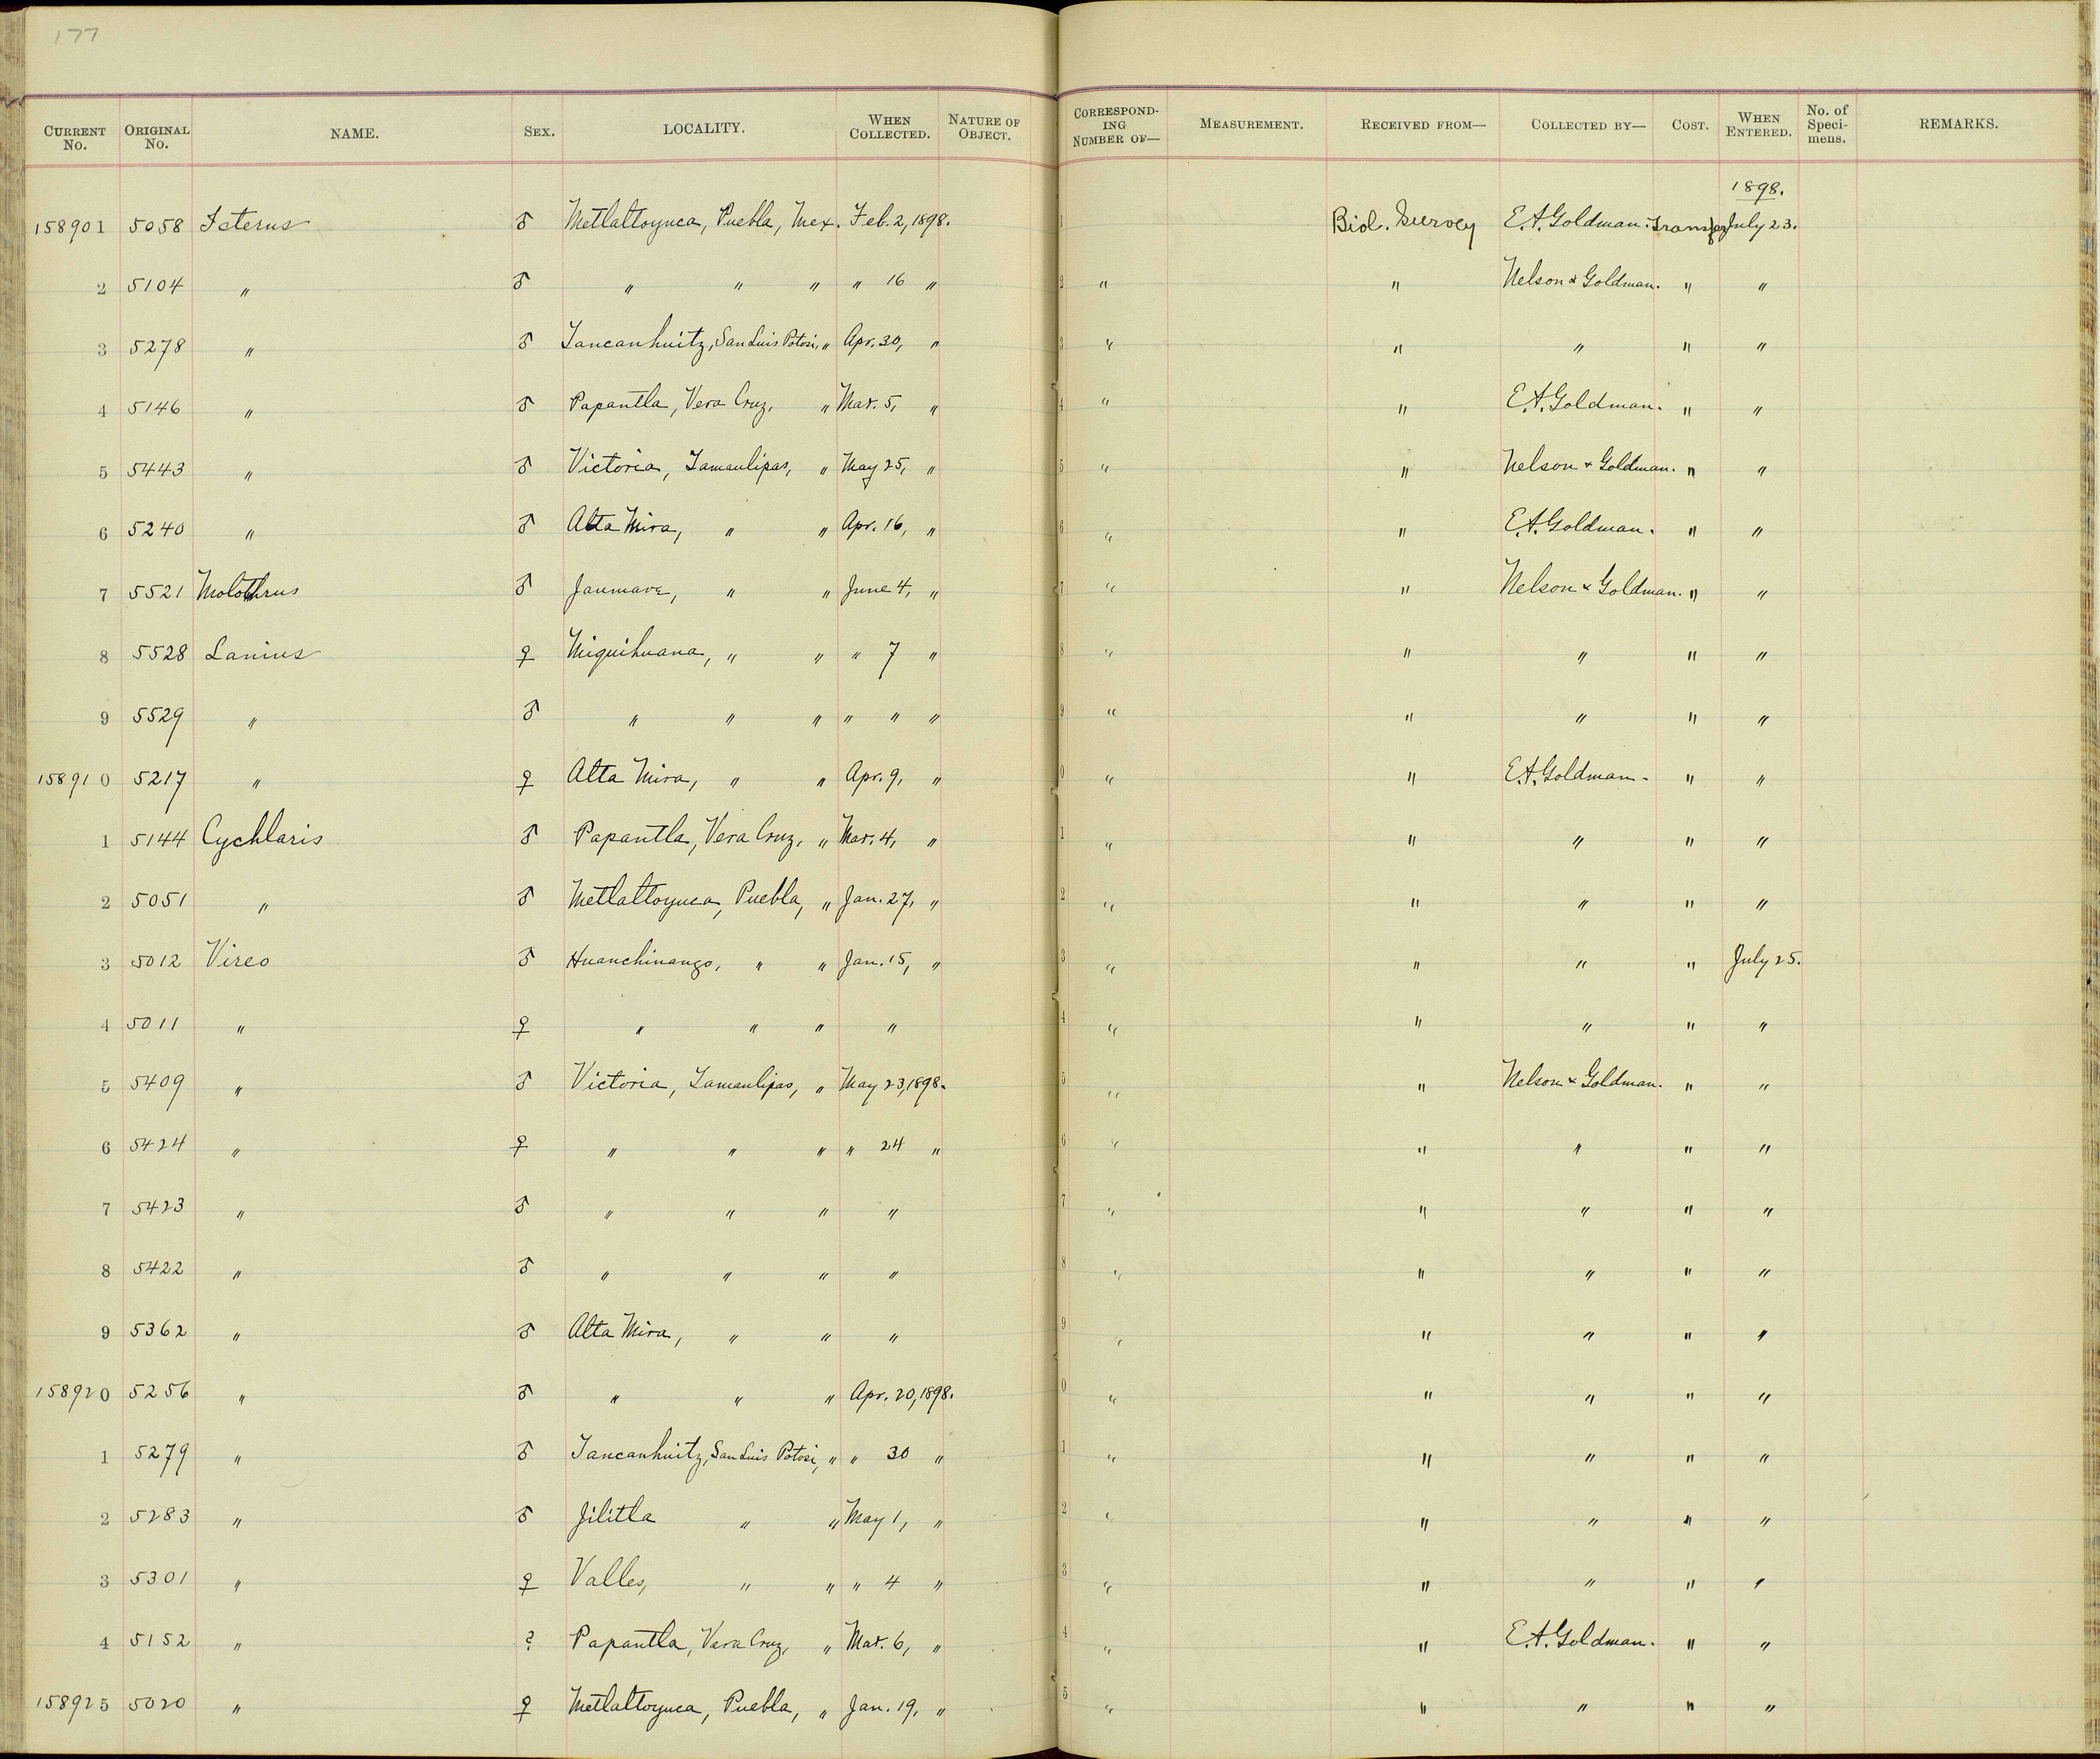 177
CURRENT No. ORIGINAL No. NAME. SEX. LOCALITY. WHEN COLLECTED. NATURE OF OBJECT. CORRESPONDING NUMBER OF— MEASUREMENT. RECEIVED FROM— COLLECTED BY— COST. WHEN ENTERED. No. of Specimens. REMARKS.
1898.
158901 5058 Icterus ♂ Metlaltoyuca, Puebla, Mex. Feb. 2, 1898. 1 Biol. Survey E.A. Goldman. Transfer July 23.
2 5104 " ♂ " " " " 16 " 2 " " Nelson & Goldman. " "
3 5278 " ♂ Tancanhuitz, San Luis Potosi, " Apr. 30, " 3 " " " " "
4 5146 " ♂ Papantla, Vera Cruz, " Mar. 5, " 4 " " E.A. Goldman. " "
5 5443 " ♂ Victoria, Tamaulipas, " May 25, " 5 " " Nelson & Goldman. " "
6 5240 " ♂ Alta Mira, " " Apr. 16, " 6 " " E.A. Goldman. " "
7 5521 Molothrus ♂ Jaumave, " " June 4, " 7 " " Nelson & Goldman. " "
8 5528 Lanius ♀ Miquihuana, " " " 7 " 8 " " " " "
9 5529 " ♂ " " " " " " 9 " " " " "
158910 5217 " ♀ Alta Mira, " " Apr. 9, " 0 " " E.A. Goldman. " "
1 5144 Cychlaris ♂ Papantla, Vera Cruz, " Mar. 4, " 1 " " " " "
2 5051 " ♂ Metlaltoyuca, Puebla, " Jan. 27, " 2 " " " " "
3 5012 Vireo ♂ Huanchinango, " " Jan. 15, " 3 " " " " July 25.
4 5011 " ♀ " " " " 4 " " " " "
5 5409 " ♂ Victoria, Tamaulipas, " May 23, 1898. 5 " " Nelson & Goldman. " "
6 5424 " ♀ " " " " 24 " 6 " " " " "
7 5423 " ♂ " " " " 7 " " " " "
8 5422 " ♂ " " " " 8 " " " " "
9 5362 " ♂ Alta Mira, " " " 9 " " " " "
158920 5256 " ♂ " " " Apr. 20, 1898. 0 " " " " "
1 5279 " ♂ Tancanhuitz, San Luis Potosi, " " 30 " 1 " " " " "
2 5283 " ♂ Jilitla " " May 1, " 2 " " " " "
3 5301 " ♀ Valles, " " " 4 " 3 " " " " "
4 5152 " ? Papantla, Vera Cruz, " Mar. 6, " 4 " " E.A. Goldman. " "
158925 5020 " ♀ Metlaltoyuca, Puebla, " Jan. 19, " 5 " " " " "